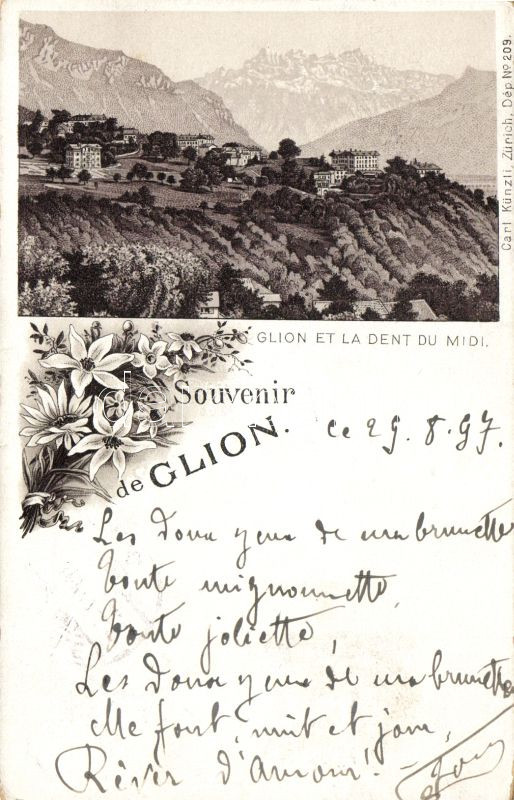 Carl Künzli, Zürich, Dép. No 209.
GLION ET LA DENT DU MIDI.
Souvenir
de GLION.
ce 29. 8. 97.
Les doux yeux de ma brunette
Toute mignonnette,
Toute joliette,
Les doux yeux de ma brunette
Me font, nuit et jour,
Rêver d'Amour! –